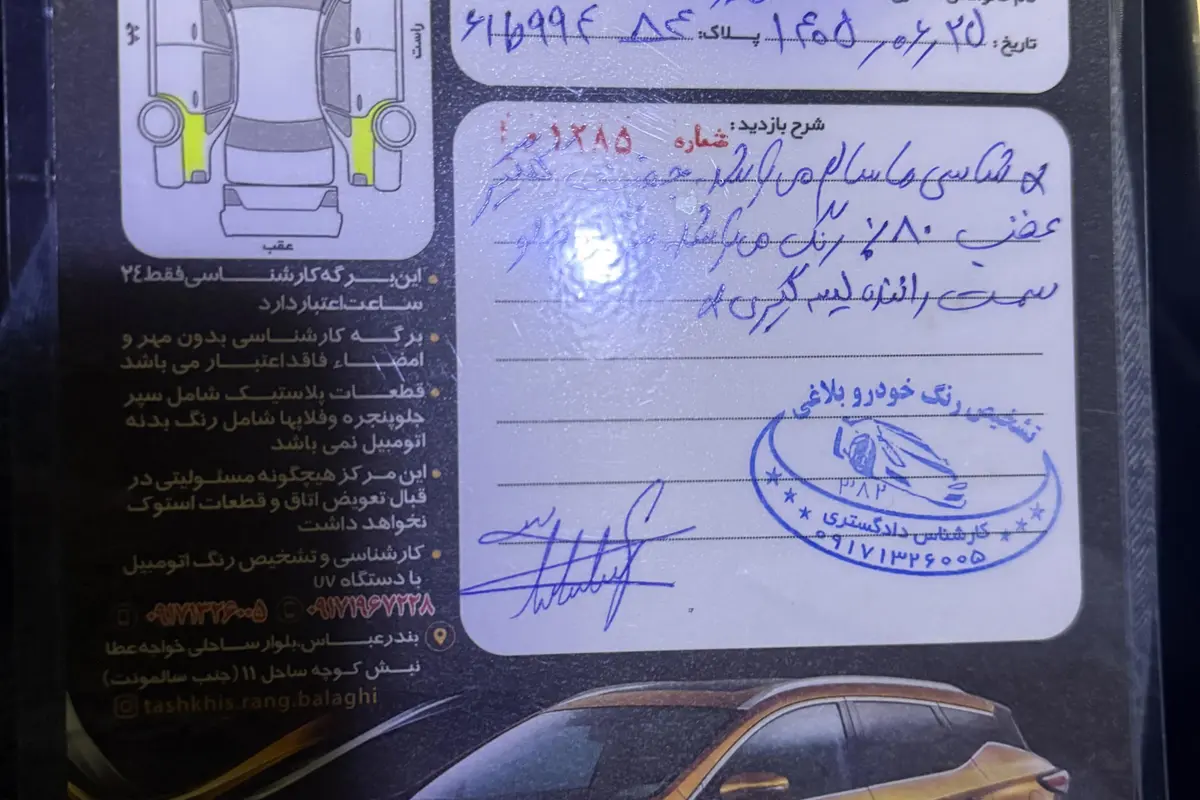 تاریخ: ۱۴۰۵٫۰۶٫۲۵ پلاک: ۸۴
شرح بازدید:
شماره ۱۲۸۵
* شاسی ها سالم می باشد. گلگیر
عقب ۸۰٪ رنگ می باشد
سمت راننده لیسه گیری *
تشخیص رنگ خودرو بلاغی
۳۸۲
کارشناس دادگستری
۰۹۱۷۱۳۲۶۰۰۵
راست
چپ
عقب
این برگه کارشناسی فقط ۲۴
ساعت اعتبار دارد
برگه کارشناسی بدون مهر و
امضاء فاقد اعتبار می باشد
قطعات پلاستیک شامل سپر
جلوپنجره وفلاپها شامل رنگ بدنه
اتومبیل نمی باشد
این مرکز هیچگونه مسئولیتی در
قبال تعویض اتاق و قطعات استوک
نخواهد داشت
کارشناسی و تشخیص رنگ اتومبیل
با دستگاه UV
۰۹۱۷۱۹۶۷۲۲۸ ۰۹۱۷۱۳۲۶۰۰۵
بندرعباس، بلوار ساحلی خواجه عطا
نبش کوچه ساحل ۱۱ (جنب سالمونت)
tashkhis.rang.balaghi